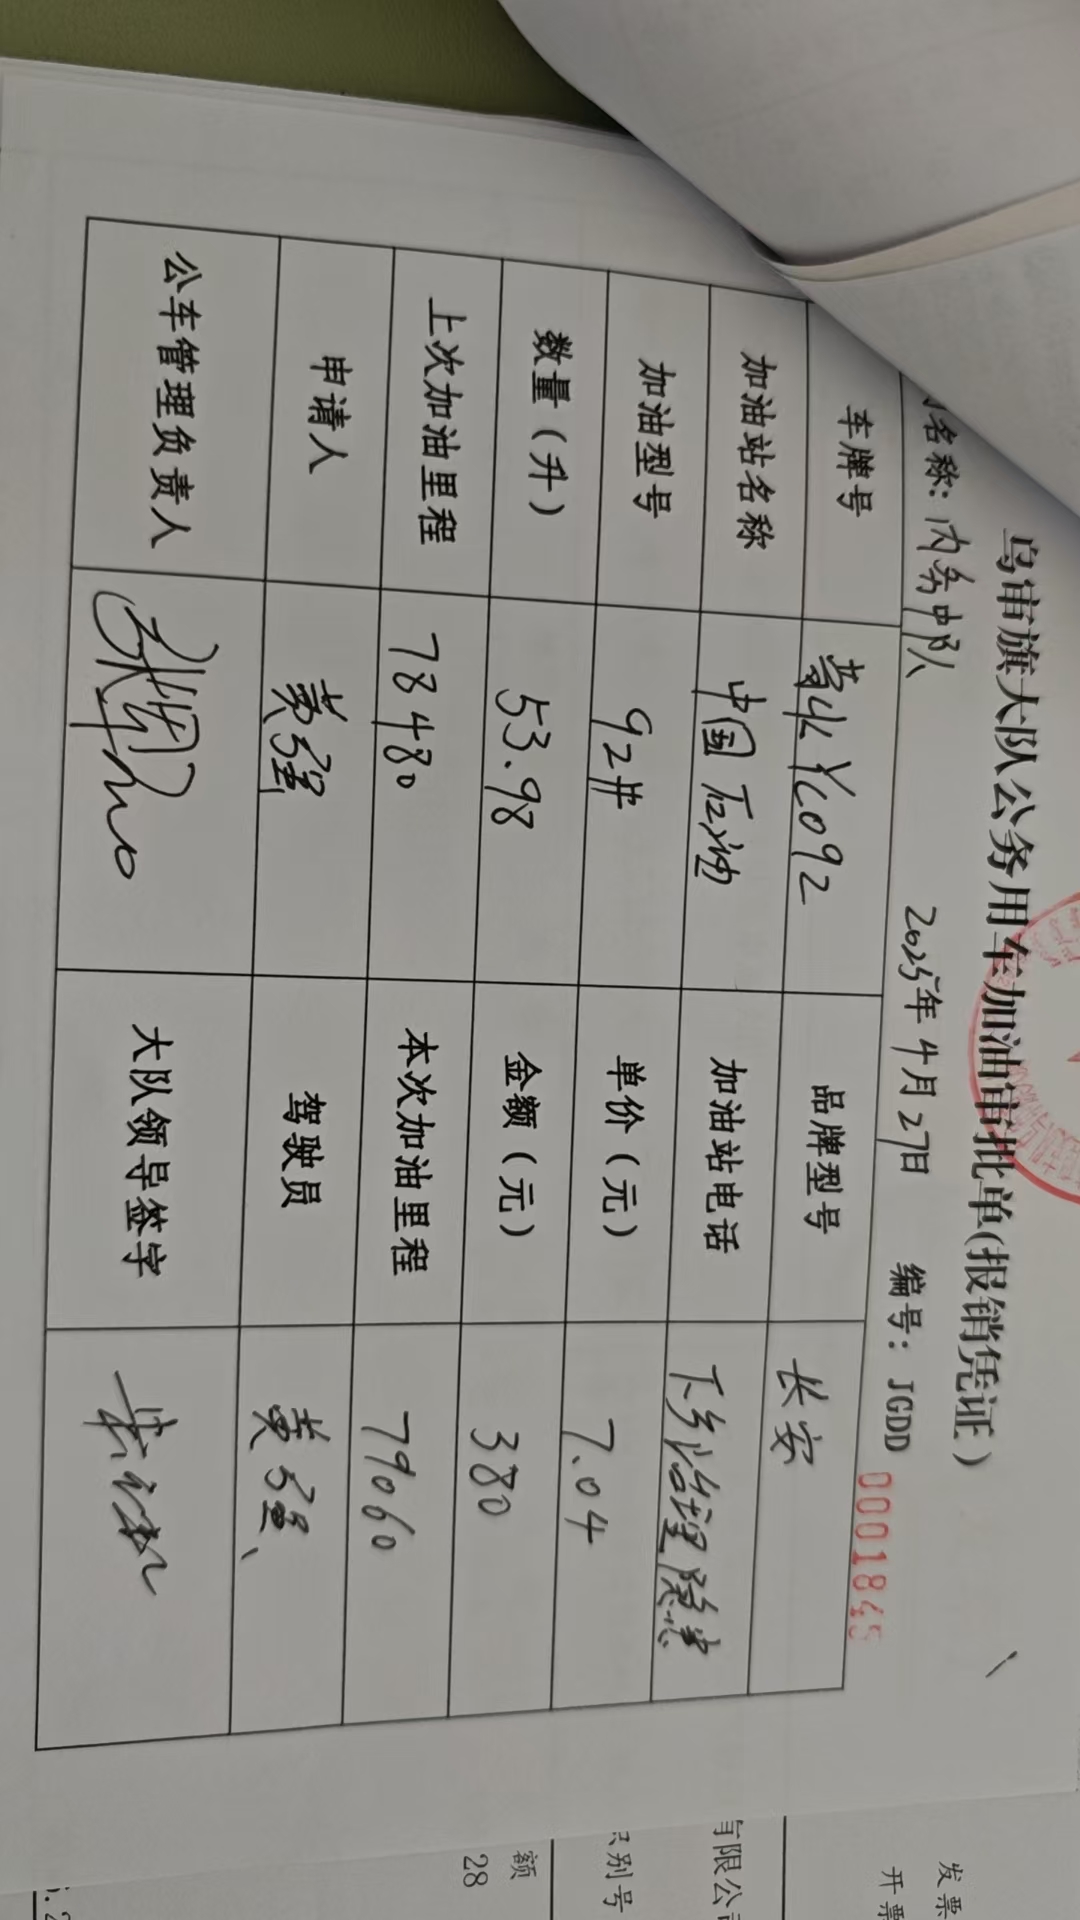 乌审旗大队公务用车加油审批单(报销凭证)
名称: 内务中队 2025年4月27日 编号: JGDD 0001845
车牌号 YC092 品牌型号 长安
加油站名称 中国石油 加油站电话 下乡治理隐患
加油型号 92# 单价(元) 7.04
数量(升) 53.98 金额(元) 380
上次加油里程 78480 本次加油里程 79060
申请人 黄强 驾驶员 黄强、
公车管理负责人 大队领导签字
发票
开票
有限公司
识别号
额
28